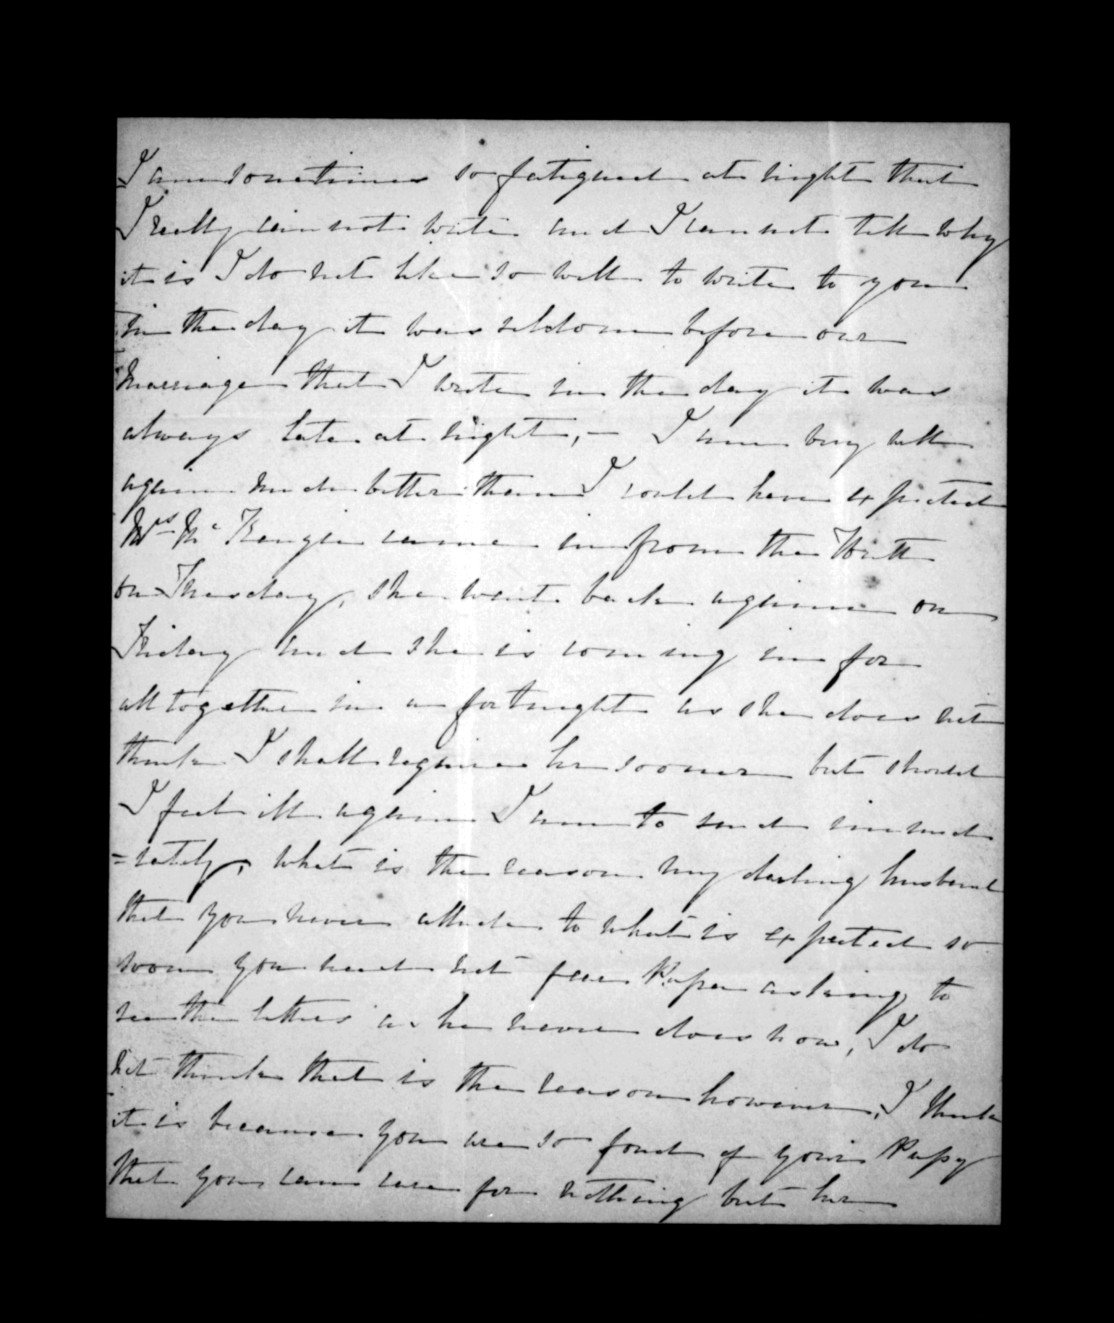 I am sometimes so fatigued at night that
I really can not write and I cannot tell why
it is I do not like so well to write to you
in the day it was seldom before our
marriage that I wrote in the day it was
always late at night, – I am very well
again much better than I could have expected
Mrs Mc Kenzie came in from the Hutt
on Thursday, she went back again on
Friday and she is coming in for
all together in a fortnight as she does not
think I shall require her sooner but should
I feel ill again I am to send immed
=iately, what is the reason my darling husband
that you never allude to what is expected so
soon you need not fear Papa asking to
see the letters as he never does now, I do
not think that is the reason however, I think
it is because you are so fond of your Pussy
that you can care for nothing but her